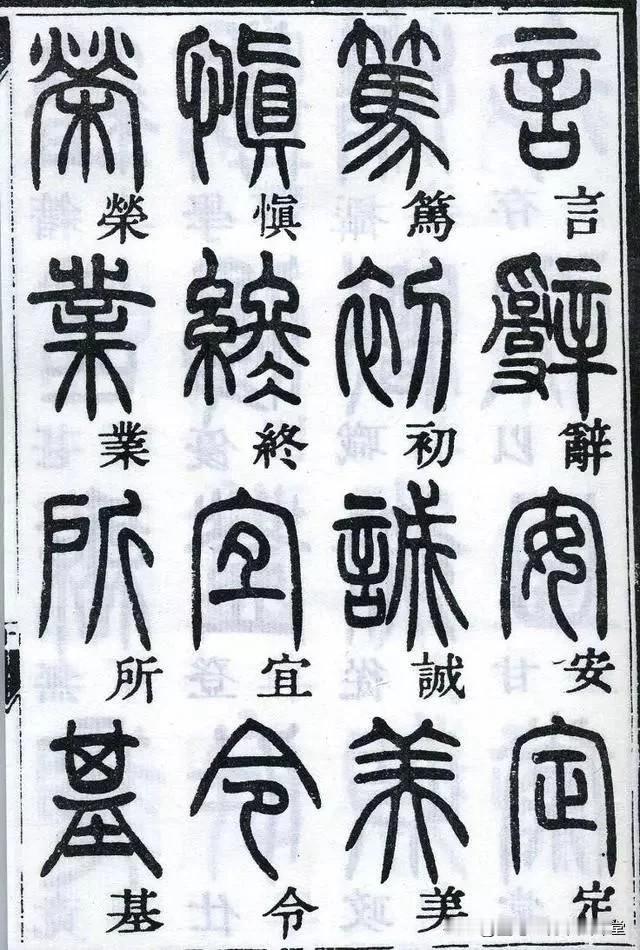 言辭安定
篤初誠美
慎終宜令
榮業所基